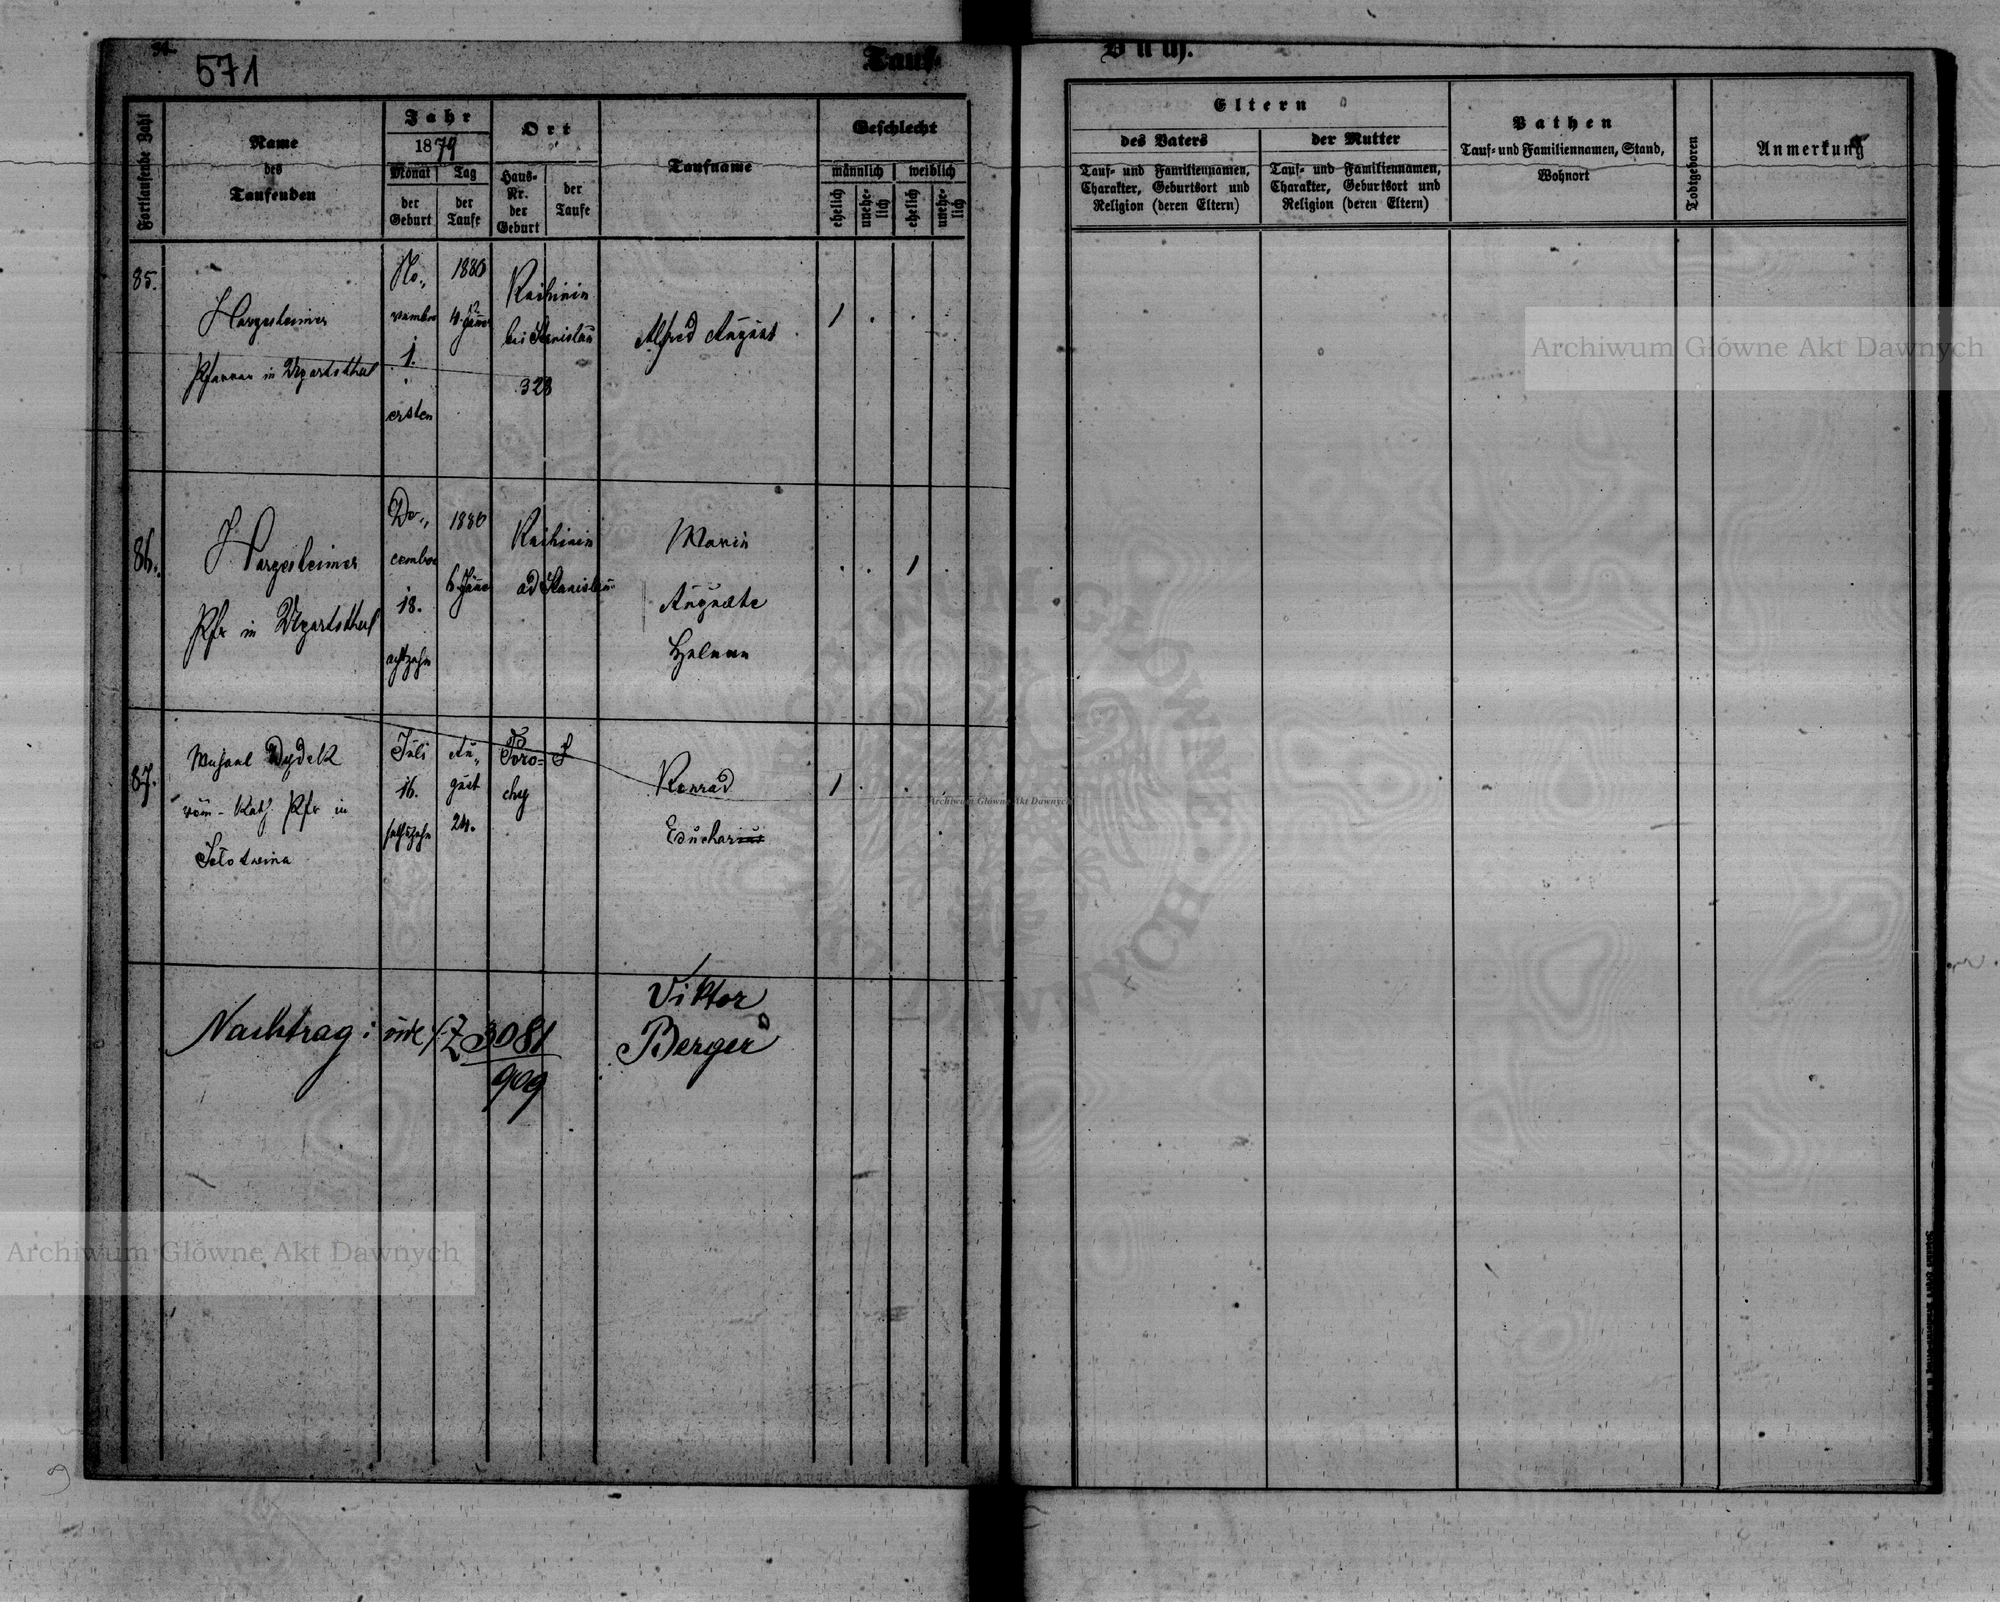 34.
571
Tauf-
Buch.
Fortlaufende Zahl
Name
des
Taufenden
Jahr
1879
Monat
der
Geburt
Tag
der
Taufe
Ort
Haus-
Nr.
der
Geburt
der
Taufe
Taufname
Geschlecht
männlich
weiblich
ehelich
unehe-
lich
ehelich
unehe-
lich
Eltern
des Vaters
der Mutter
Tauf- und Familiennamen,
Charakter, Geburtsort und
Religion (deren Eltern)
Tauf- und Familiennamen,
Charakter, Geburtsort und
Religion (deren Eltern)
Pathen
Tauf- und Familiennamen, Stand,
Wohnort
Todtgeboren
Anmerkung
85.
Hargesheimer
Pfarrer in Ugartsthal
No-
vember
1.
ersten
1880
4. Jäner
bei Stanislau
328
Alfred August
1
86.
J Hargesheimer
Pfr in Ugartsthal
De-
cember
18.
achtzehn
1880
6. Jäner
ad Stanislau
Marie
Auguste
Helene
1
87.
Michael Dydek
röm-Kath. Pfr in
Juli
16.
sechszehn
Au-
gust
24.
Toro-
Konrad
1
Nachtrag: vide / Z 3081
909
Viktor
Berger
Archiwum Główne Akt Dawnych
Archiwum Główne Akt Dawnych
Archiwum Główne Akt Dawnych
ARCHIWUM GŁÓWNE AKT DAWNYCH